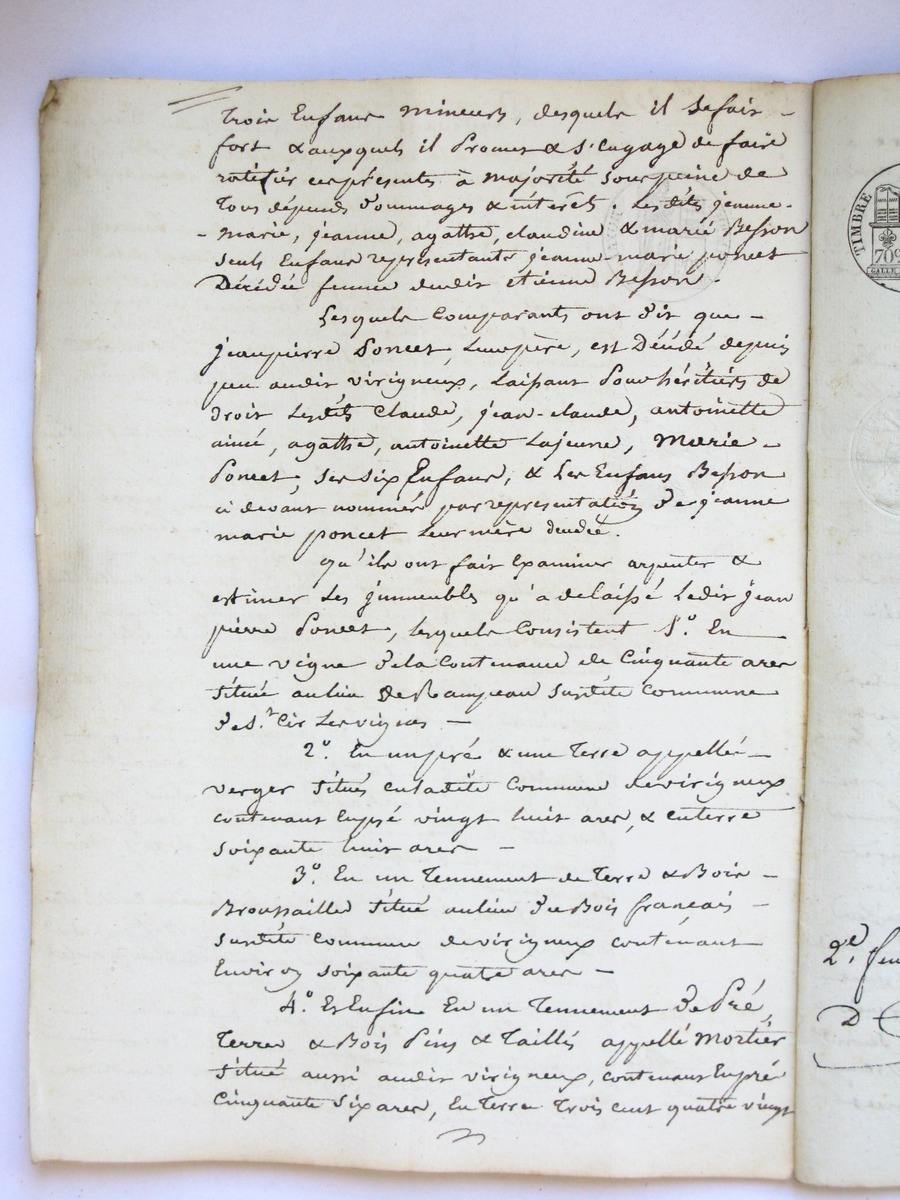 trois Enfans mineurs, desquels il se fait -
fort & auxquels il Promet & s'engage de faire
ratifier ces présentes à majorité sous peine de
tous dépends dommages & intérêts. Lesdits jeanne-
- marie, jeanne, agathe, claudine & marie Besson
seuls Enfans représentants jeanne-marie poncet
Décédée femme dudit etienne Besson.
Lesquels Comparants ont dit que -
jean pierre Poncet, leur père, est Décédé depuis
peu audit virigneux, Laissant Pour héritiers de
droit Lesdits Claude, jean-claude, antoinette
ainé, agathe, antoinette Lajeune, Marie -
Poncet, ses six Enfans, & Les Enfans Besson
ci devant nommés par représentation de jeanne
marie poncet Leur mère décédée.
qu'ils ont fait Examiner arpenter &
estimer Les jmmeubles qu'a delaissé Ledit jean
pierre Poncet, Lesquels Consistent 1.º En
une vigne de la Contenance de Cinquante ares
située au lieu de Rampeau susdite Commune
de S.t Cir Les vignes -
2.º En un pré & une Terre appellés -
verger situés en ladite Commune de virigneux
contenant En pré vingt huit ares, & en terre
soixante huit ares -
3.º En un Tennement de Terre & Bois -
Broussailles situé au lieu de Bois francais -
susdite Commune de virigneux contenant
Environ soixante quatre ares -
4.º Et Enfin En un Tennement de Pré,
Terres & Bois Pins & Taillis appellé Mortier
situé aussi audit virigneux, contenant En pré
Cinquante six ares, En Terre Trois cent quatre vingt
TIMBRE
70c
2.e
D